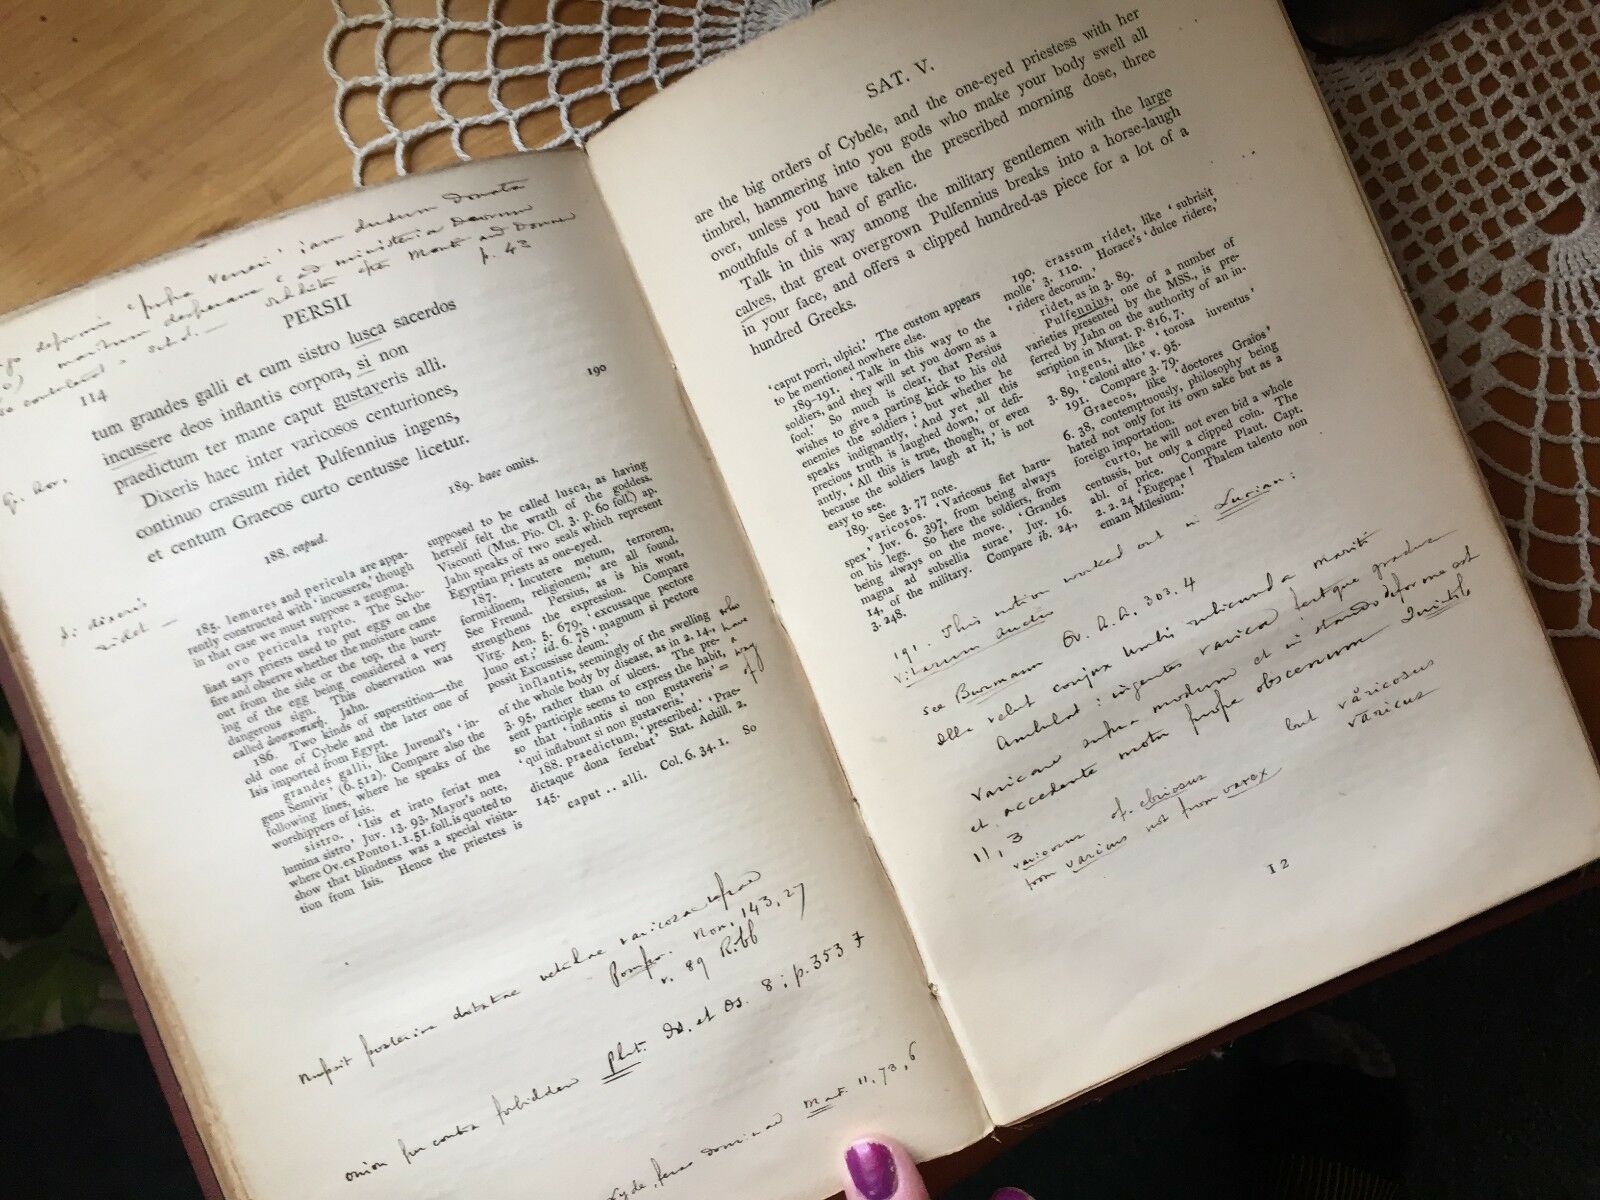 114
PERSII
tum grandes galli et cum sistro lusca sacerdos
incussere deos inflantis corpora, si non
praedictum ter mane caput gustaveris alli.
Dixeris haec inter varicosos centuriones, 190
continuo crassum ridet Pulfennius ingens,
et centum Graecos curto centusse licetur.
188. caput. 189. haec omiss.
185. lemures and pericula are appa-
rently constructed with 'incussere,' though
in that case we must suppose a zeugma.
ovo pericula rupto. The Scho-
liast says priests used to put eggs on the
fire and observe whether the moisture came
out from the side or the top, the burst-
ing of the egg being considered a very
dangerous sign. This observation was
called Jahn.
186. Two kinds of superstition—the
old one of Cybele and the later one of
Isis imported from Egypt.
grandes galli, like Juvenal's 'in-
gens Semivir' (6. 512). Compare also the
following lines, where he speaks of the
worshippers of Isis.
sistro. 'Isis et irato feriat mea
lumina sistro' Juv. 13. 93, Mayor's note,
where Ov. ex Ponto 1. 1. 51. foll. is quoted to
show that blindness was a special visita-
tion from Isis. Hence the priestess is
supposed to be called lusca, as having
herself felt the wrath of the goddess.
Visconti (Mus. Pio. Cl. 3. p. 60 foll.) ap.
Jahn speaks of two seals which represent
Egyptian priests as one-eyed.
187. 'Incutere metum, terrorem,
formidinem, religionem,' are all found,
See Freund. Persius, as is his wont,
strengthens the expression. Compare
Virg. Aen. 5. 679, 'excussaque pectore
Juno est;' id. 6. 78 'magnum si pectore
possit Excussisse deum.'
inflantis, seemingly of the swelling
of the whole body by disease, as in 2. 14,
3. 95, rather than of ulcers. The pre-
sent participle seems to express the habit,
so that 'inflantis si non gustaveris' =
'qui inflabunt si non gustaveris.'
188. praedictum, 'prescribed.' 'Prae-
dictaque dona ferebat' Stat. Achill. 2.
145.
caput .. alli. Col. 6. 34. 1. So
Non. 143, 27
v. 89 Ribb
onion per contra forbidden Plut. Is. et Os. 8; p. 353 F
Mart. 11, 73, 6
SAT. V.
are the big orders of Cybele, and the one-eyed priestess with her
timbrel, hammering into you gods who make your body swell all
over, unless you have taken the prescribed morning dose, three
mouthfuls of a head of garlic.
Talk in this way among the military gentlemen with the large
calves, that great overgrown Pulfennius breaks into a horse-laugh
in your face, and offers a clipped hundred-as piece for a lot of a
hundred Greeks.
'caput porri, ulpici.' The custom appears
to be mentioned nowhere else.
189-191. 'Talk in this way to the
soldiers, and they will set you down as a
fool.' So much is clear, that Persius
wishes to give a parting kick to his old
enemies the soldiers; but whether he
speaks indignantly, 'And yet all this
precious truth is laughed down,' or defi-
antly, 'All this is true, though, or even
because the soldiers laugh at it,' is not
easy to see.
189. See 3. 77 note.
varicosos. 'Varicosus fiet haru-
spex' Juv. 6. 397, from being always
on his legs. So here the soldiers, from
being always on the move. 'Grandes
magna ad subsellia surae' Juv. 16.
14, of the military. Compare ib. 24,
3. 248.
190. crassum ridet, like 'subrisit
molle' 3. 110. Horace's 'dulce ridere,'
'ridere decorum.'
ridet, as in 3. 89.
Pulfennius, one of a number of
varieties presented by the MSS., is pre-
ferred by Jahn on the authority of an in-
scription in Murat. p. 816, 7.
ingens, like 'torosa iuventus'
3. 89, 'caloni alto' v. 95.
191. Compare 3. 79.
Graecos, like 'doctores Graios'
6. 38, contemptuously, philosophy being
hated not only for its own sake but as a
foreign importation.
curto, he will not even bid a whole
centussis, but only a clipped coin. The
abl. of price. Compare Plaut. Capt.
2. 2. 24 'Eugepae! Thalem talento non
emam Milesium.'
191. This notion worked out in Lucian:
Vitarum auctio
see Burmann Ov. A.A. 303. 4
Illa velut conjux Umbri rubicunda mariti
Ambulat: ingentes varica fertque gradus
varicare supra modum et in stando deforme est
et accedente motu prope obscenum Quintil.
11, 3
varicosus cf. ebriosus but vāricosus
from varicus not from varex varicus
I 2